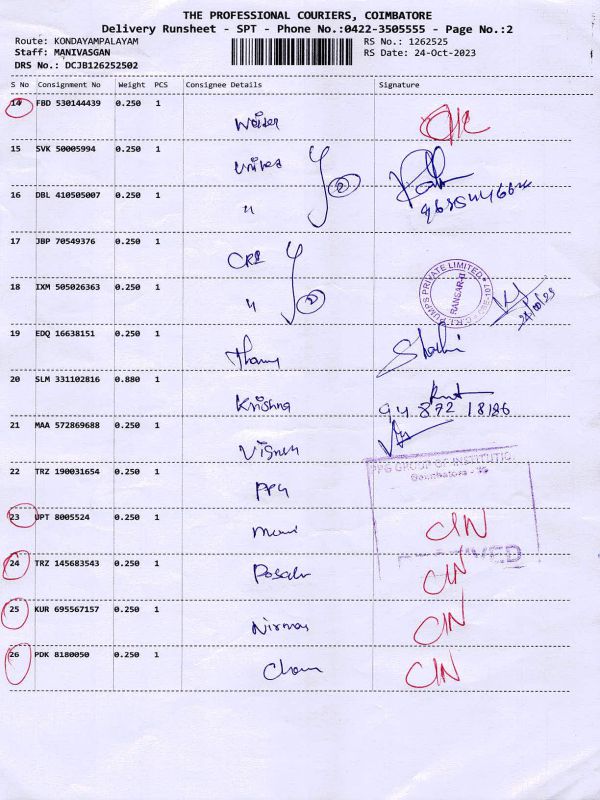 THE PROFESSIONAL COURIERS, COIMBATORE
Delivery Runsheet - SPT - Phone No.:0422-3505555 - Page No.:2
Route: KONDAYAMPALAYAM RS No.: 1262525
Staff: MANIVASGAN RS Date: 24-Oct-2023
DRS No.: DCJB126252502
S No Consignment No Weight PCS Consignee Details Signature
14 FBD 530144439 0.250 1
15 SVK 50005994 0.250 1
16 DBL 410505007 0.250 1 2
17 JBP 70549376 0.250 1 CRI
18 IXM 505026363 0.250 1 2
C.R.I. PUMPS PRIVATE LIMITED
19 EDQ 16638151 0.250 1
20 SLM 331102816 0.880 1 Krishna
94 872 18186
21 MAA 572869688 0.250 1
22 TRZ 190031654 0.250 1 PPG
PPG GROUP OF INSTITUTIO
23 UPT 8005524 0.250 1 Mani CIN
24 TRZ 145683543 0.250 1 CIN
25 KUR 695567157 0.250 1 CIN
26 PDK 8180050 0.250 1 CIN